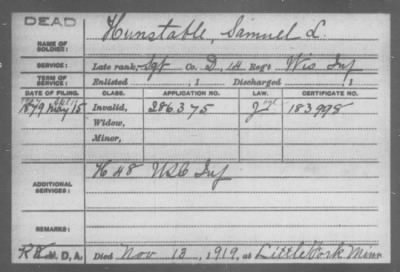 DEAD
NAME OF SOLDIER: Hunstable, Samuel L.
SERVICE: Late rank, Sgt Co. D, 14 Reg't Wis Inf
TERM OF SERVICE: Enlisted , 1 Discharged , 1
DATE OF FILING. CLASS. APPLICATION NO. LAW. CERTIFICATE NO.
1879 May 15 Invalid, 286375 183998
Widow,
Minor,
ADDITIONAL SERVICES: H 48 USC Inf
REMARKS:
M. D. A. Died Nov 13, 1919, at Little Fork Minn